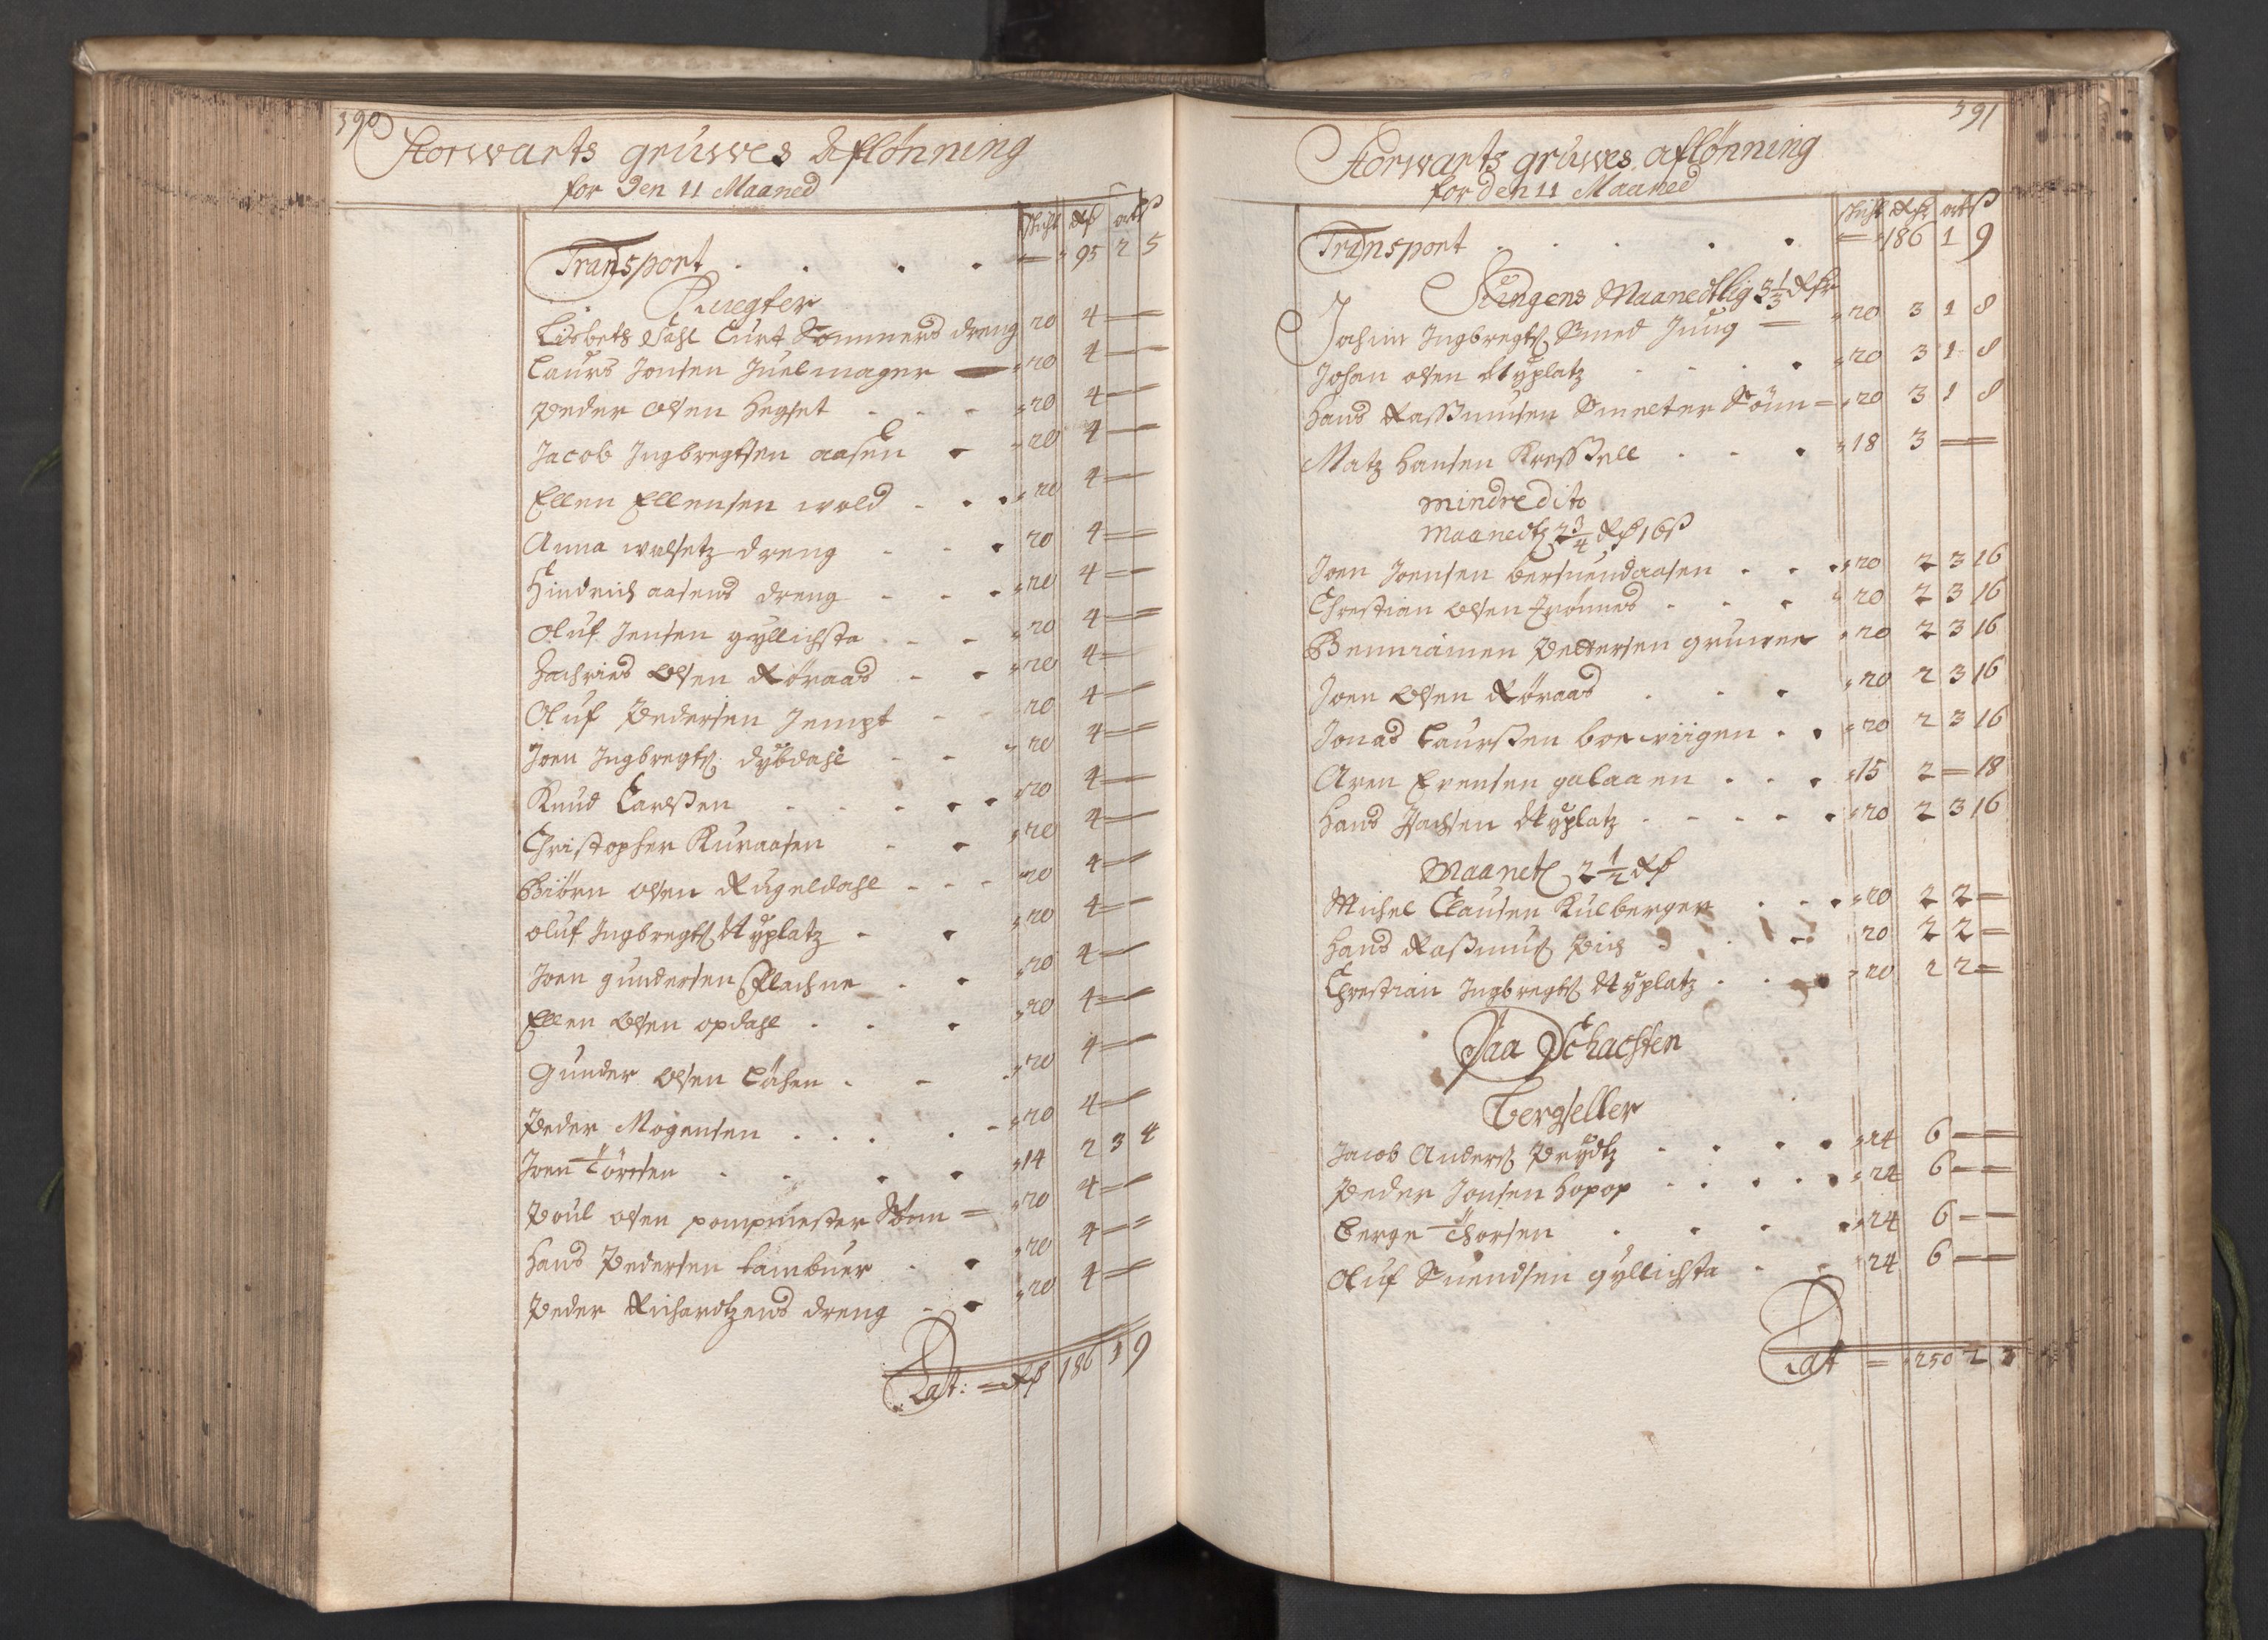 390
Storwarts gruwes Aflønning
for den 11 Maaned
schist Rdr ort ß
Transport . . . . — 95 2 5
Knegter
Lisbeth Dahl Curt Sommers dreng 20 4 —
Laurs Jonsen Juelmager — 20 4 —
Peder Olsen Hegset . . . 20 4 —
Jacob Ingbregtsen aasen . 20 4 —
Ellen Ellensen wold . . . 20 4 —
Anna walsetz dreng . . . 20 4 —
Hindrich aasens dreng . . . 20 4 —
Oluf Jensen gyllichsta . . 20 4 —
Zachries Olsen Røraas . . 20 4 —
Oluf Pedersen Jempt . . 20 4 —
Joen Ingbregts: dybdahl . . 20 4 —
Knud Carlßen . . . . . 20 4 —
Christopher Kuraasen . . 20 4 —
Biørn olsen Rugeldahl . . . 20 4 —
oluf Ingbregts Nyplatz . . 20 4 —
Joen gundersen Flachne . . 20 4 —
Ellen Olsen opdahl . . . 20 4 —
Gunder Olsen Låhsen . . . 20 4 —
Peder Mogensen . . . . . 20 4 —
Joen Tørresen . . . . 14 2 3 4
Poul olsen pompmester Sønn = 20 4 —
Hans Pedersen tambuer . . 20 4 —
Peder Richardtzens dreng . . 20 4 —
Lat: = Rdr 186 1 9
391
Storwarts gruwes aflønning
for den 11 Maaned
schist Rdr ort ß
Transport . . . . . — 186 1 9
Dengens Maanedtlig 3 1/3 Rdr
Jochim Ingbregts Smed Jung = 20 3 1 8
Johan olsen Nyplatz . . . . 20 3 1 8
Hans Rassmusen Smelter Sønn = 20 3 1 8
Matz Hansen Kreßßell . . . 18 3 —
mindre dito
Maanedtl 2 3/4 Rdr 16 ß
Joen Joensen bersuendaasen . . . 20 2 3 16
Chrestian Olsen Trønnes . . . 20 2 3 16
Benniamen Pedersen gruwen 20 2 3 16
Joen Olsen Røraas . . . 20 2 3 16
Jonas Laurßen brewiigen . . 20 2 3 16
Aren Evensen galaaen . . . 15 2 — 18
Hans Isachsen Nyplatz . . . . . 20 2 3 16
Maanetl 2 1/2 Rdr
Michel Clausen Kulberger . . . 20 2 2 —
Hans Raßmus . . 20 2 2 —
Chrestian Ingbregts Nyplatz . . . 20 2 2 —
Paa Schachten
Bergseller
Jacob Anders Prydtz . . . . 24 6 —
Peder Jonsen Hopop . . . . . 24 6 —
Berge Thorsen . . . . 24 6 —
Oluf Suendsen gyllichsta . . 24 6 —
Lat = 250 2